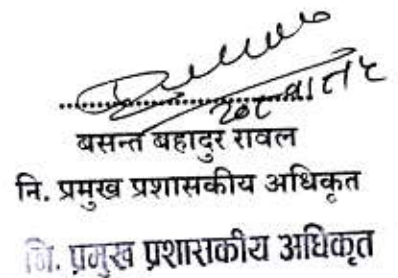 बसन्त बहादुर रावल
नि. प्रमुख प्रशासकीय अधिकृत
नि. प्रमुख प्रशासकीय अधिकृत